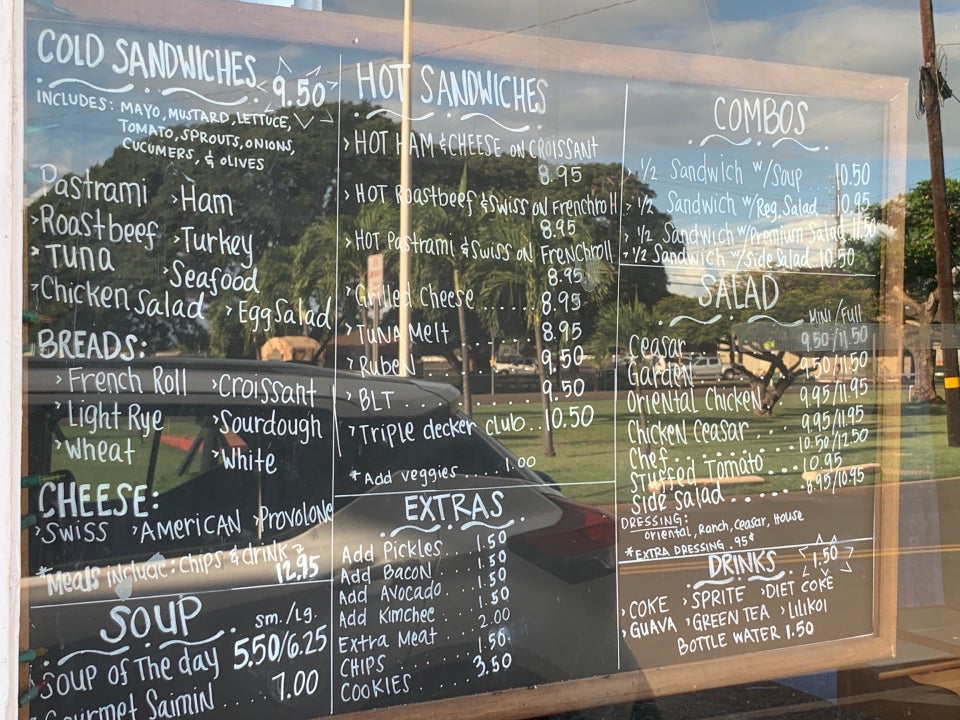 COLD SANDWICHES 9.50
INCLUDES: MAYO, MUSTARD, LETTUCE,
TOMATO, SPROUTS, ONIONS,
CUCUMERS, & OLIVES
Pastrami >Ham
>Roastbeef >Turkey
>Tuna >Seafood
>Chicken Salad >Egg Salad
BREADS:
>French Roll >Croissant
>Light Rye >Sourdough
>Wheat >White
CHEESE:
>Swiss >American >Provolone
*Meals include: chips & drink
12.95
SOUP sm./Lg.
Soup of The day 5.50/6.25
Gourmet Saimin 7.00
HOT SANDWICHES
>HOT HAM & CHEESE ON CROISSANT
8.95
>HOT Roastbeef & Swiss ON Frenchroll
8.95
>HOT Pastrami & Swiss ON Frenchroll
8.95
>Grilled Cheese ...... 8.95
>TUNA MELT ...... 8.95
>RubeN ...... 9.50
>BLT ...... 9.50
>Triple decker club.. 10.50
*Add veggies .... 1.00
EXTRAS
Add Pickles ... 1.50
Add Bacon .... 1.50
Add Avocado ... 1.50
Add Kimchee ... 1.50
Extra Meat .... 2.00
CHIPS ...... 1.50
COOKIES ...... 3.50
COMBOS
>1/2 Sandwich w/Soup ... 10.50
>1/2 Sandwich w/Reg. Salad .. 10.95
>1/2 Sandwich w/Premium Salad 11.50
>1/2 Sandwich w/Side Salad 10.50
SALAD
MINI/Full
Ceasar 9.50/11.50
Garden 9.50/11.50
Oriental Chicken 9.95/11.95
Chicken Ceasar .. 9.95/11.95
Chef ...... 10.50/12.50
Stuffed Tomato .... 10.95
Side Salad ...... 8.95/10.95
DRESSING:
Oriental, Ranch, Ceasar, House
*EXTRA DRESSING .95¢
DRINKS 1.50
>COKE >SPRITE >DIET COKE
>GUAVA >GREEN TEA >LILIKOI
BOTTLE WATER 1.50